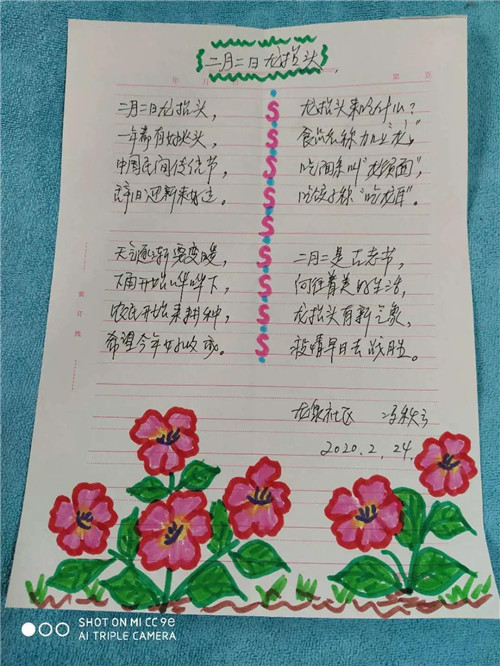 二月二日龙抬头
二月二日龙抬头，
一年都有好兆头，
中国民间传统节，
辞旧迎新来好运。
天气逐渐要变暖，
下雨开始哗哗下，
农民开始来耕种，
希望今年好收成。
龙抬头来吃什么？
食品名称加上"龙"，
吃面条叫"龙须面"，
吃饺子称"吃龙耳"。
二月二是古老节，
向往着美好生活，
龙抬头有新气象，
疫情早日去战胜。
龙泉社区 冯秋
2020.2.24.
SHOT ON MI CC 9e
AI TRIPLE CAMERA